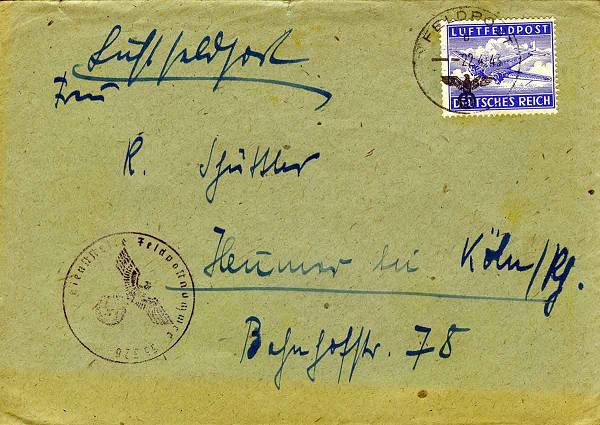 Luftfeldpost
FELDPOST
b
22.4.43
LUFTFELDPOST
DEUTSCHES REICH
Frau
K. Schüttler
Heumar bei Köln/Rh.
Bahnhofstr. 78
Dienststelle Feldpostnummer